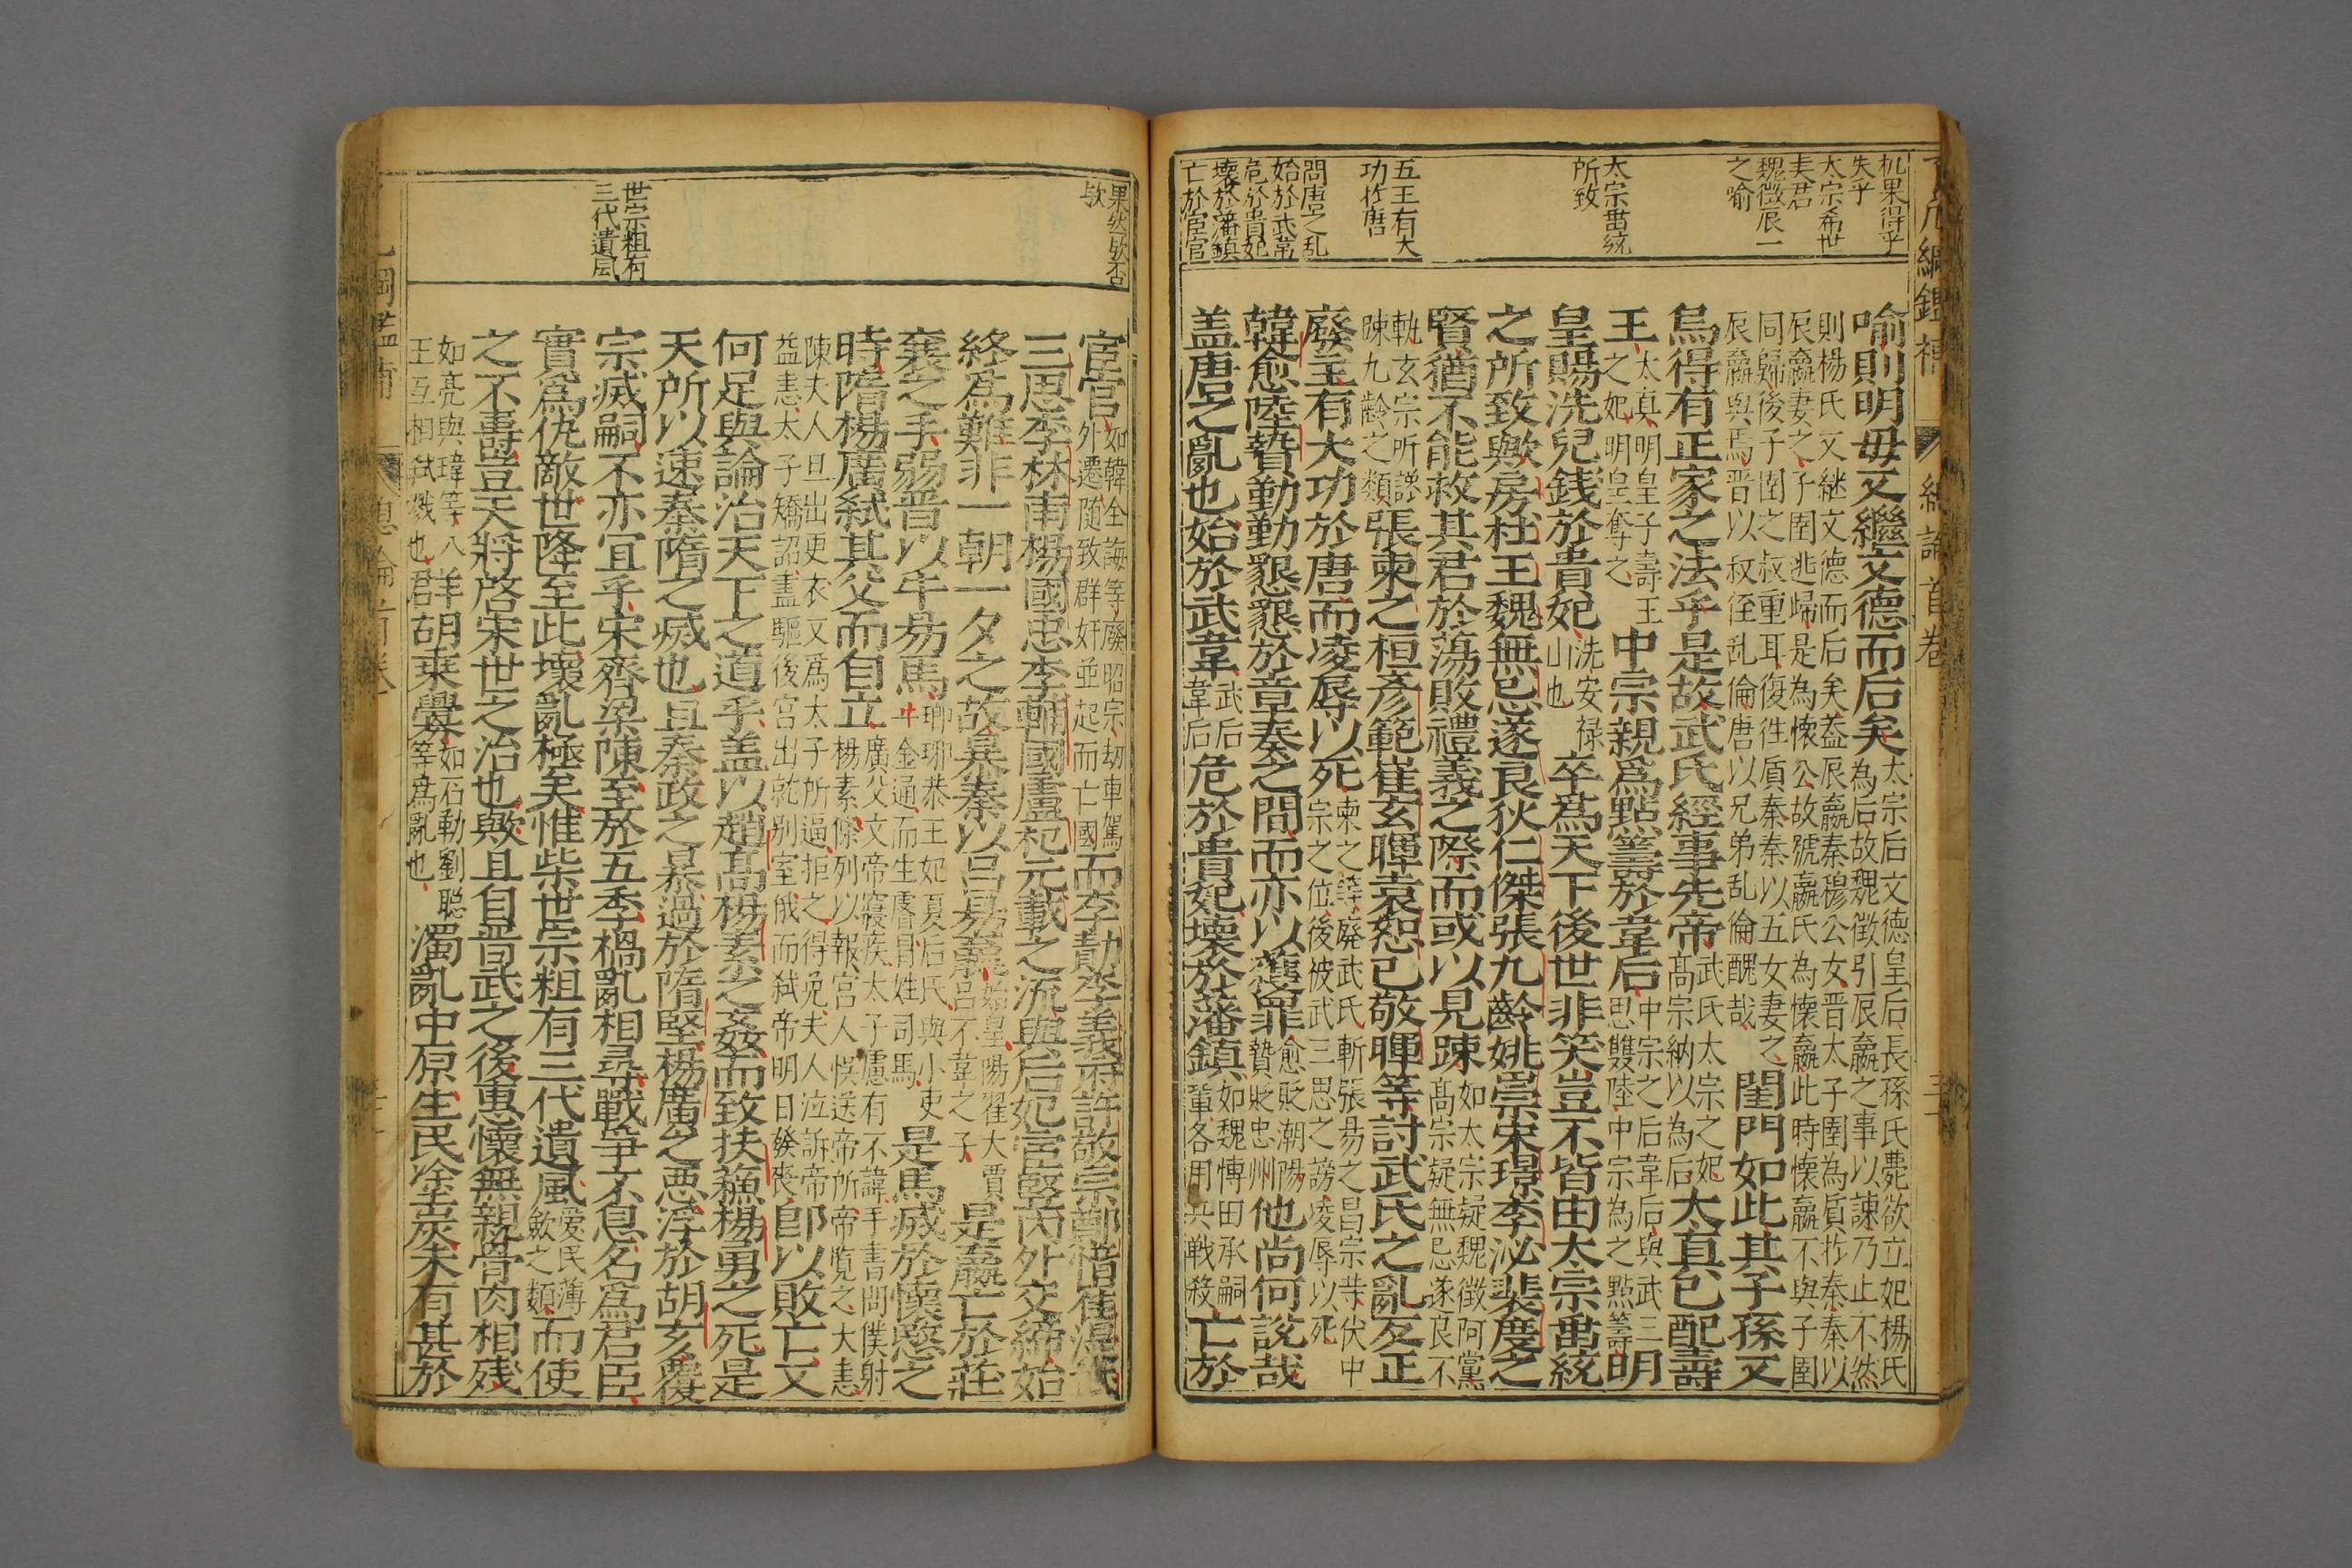 机果得乎
失乎
太宗希世
美君
魏徵辰一
之喻
太宗垂統
所致
五王有大
功於唐
問唐之乱
始於武韋
危於貴妃
壞於藩鎮
亡於宦官
喻則明毋又繼文德而后矣太宗后文德皇后長孫氏薨欲立妃楊氏
為后故魏徵引辰嬴之事以諫乃止不然
則楊氏又継文德而后矣盖辰嬴秦穆公女晋太子圉為質於秦秦以
辰嬴妻之子圉逃歸是為懐公故號嬴氏為懐嬴此時懐嬴不與子圉
同歸後子圉之叔重耳復徃質秦秦以五女妻之
辰嬴與焉晋以叔侄乱倫唐以兄弟乱倫醜哉閨門如此其子孫又
烏得有正家之法乎是故武氏經事先帝武氏太宗之妃
髙宗納以為后大真已配壽
王太真明皇子壽王
之妃明皇奪之中宗親爲點籌於韋后中宗之后韋后與武三
思雙陸中宗為之點籌明
皇賜洗兒銭於貴妃洗安禄
山也卒爲天下後世非笑豈不皆由太宗垂統
之所致歟房杜王魏無忌遂良狄仁傑張九齡姚崇宋璟李泌裴度之
賢猶不能救其君於蕩敗禮義之際而或以見踈如太宗疑魏徵阿黨
髙宗疑無忌遂良不
軌玄宗听譖
踈九齡之類張柬之桓彥範崔玄暉袁恕己敬暉等討武氏之亂反正
廢主有大功於唐而凌辱以死柬之等廢武氏斬張昜之昌宗䒭伏中
宗之位後被武三思之謗凌辱以死
韓愈陸贄勤勤懇懇於章奏之間而亦以獲罪愈貶潮陽
贄貶忠州他尚何說哉
盖唐之亂也始於武韋武后
韋后危於貴妃壞於藩鎮如魏博田承嗣
軰各用兵戦殺亡於
果然欤否
欤
世宗粗有
三代遺風
宦官如韓全誨等廢昭宗刼車駕
外遷随致群奸並起而亡國而李勣李義府許敬宗
三思李林甫楊國忠李輔國盧杞元載之流與后妃宦竪內外交締始
終爲難非一朝一夕之故暴秦以吕昜嬴始皇陽翟大賈
吕不韋之子是嬴亡於莊
襄之手弱晋以牛昜馬瑯琊恭王妃夏后氏與小吏
牛金通而生睿冒姓司馬是馬滅於懷愍之
時隋楊廣弒其父而自立廣父文帝寢疾太子慮有不諱手書問僕射
楊素條列以報宮人悞送帝所帝覧之大恚
陳夫人旦出更衣又爲太子所逼拒之得免夫人泣訴帝
益恚太子矯詔盡驅後宮出就别室俄而弒帝明日發丧卽以敗亡又
何足與論治天下之道乎盖以趙髙楊素之姦而致扶蘓楊勇之死是
天所以速秦隋之滅也且秦政之暴過於隋堅楊廣之悪浮於胡亥覆
宗滅嗣不亦冝乎宋齊梁陳至於五季禍亂相尋戰爭不息名爲君臣
實爲仇敵世降至此壞亂極矣惟柴世宗粗有三代遺風愛民薄
歛之類而使
之不壽豈天將啓宋世之治也歟且自晋武之後惠懷無親骨肉相残
如亮與瑋等八
王互相弑戮也羊胡乗釁如石勒劉聡
等爲亂也濁亂中原生民塗炭未有甚於